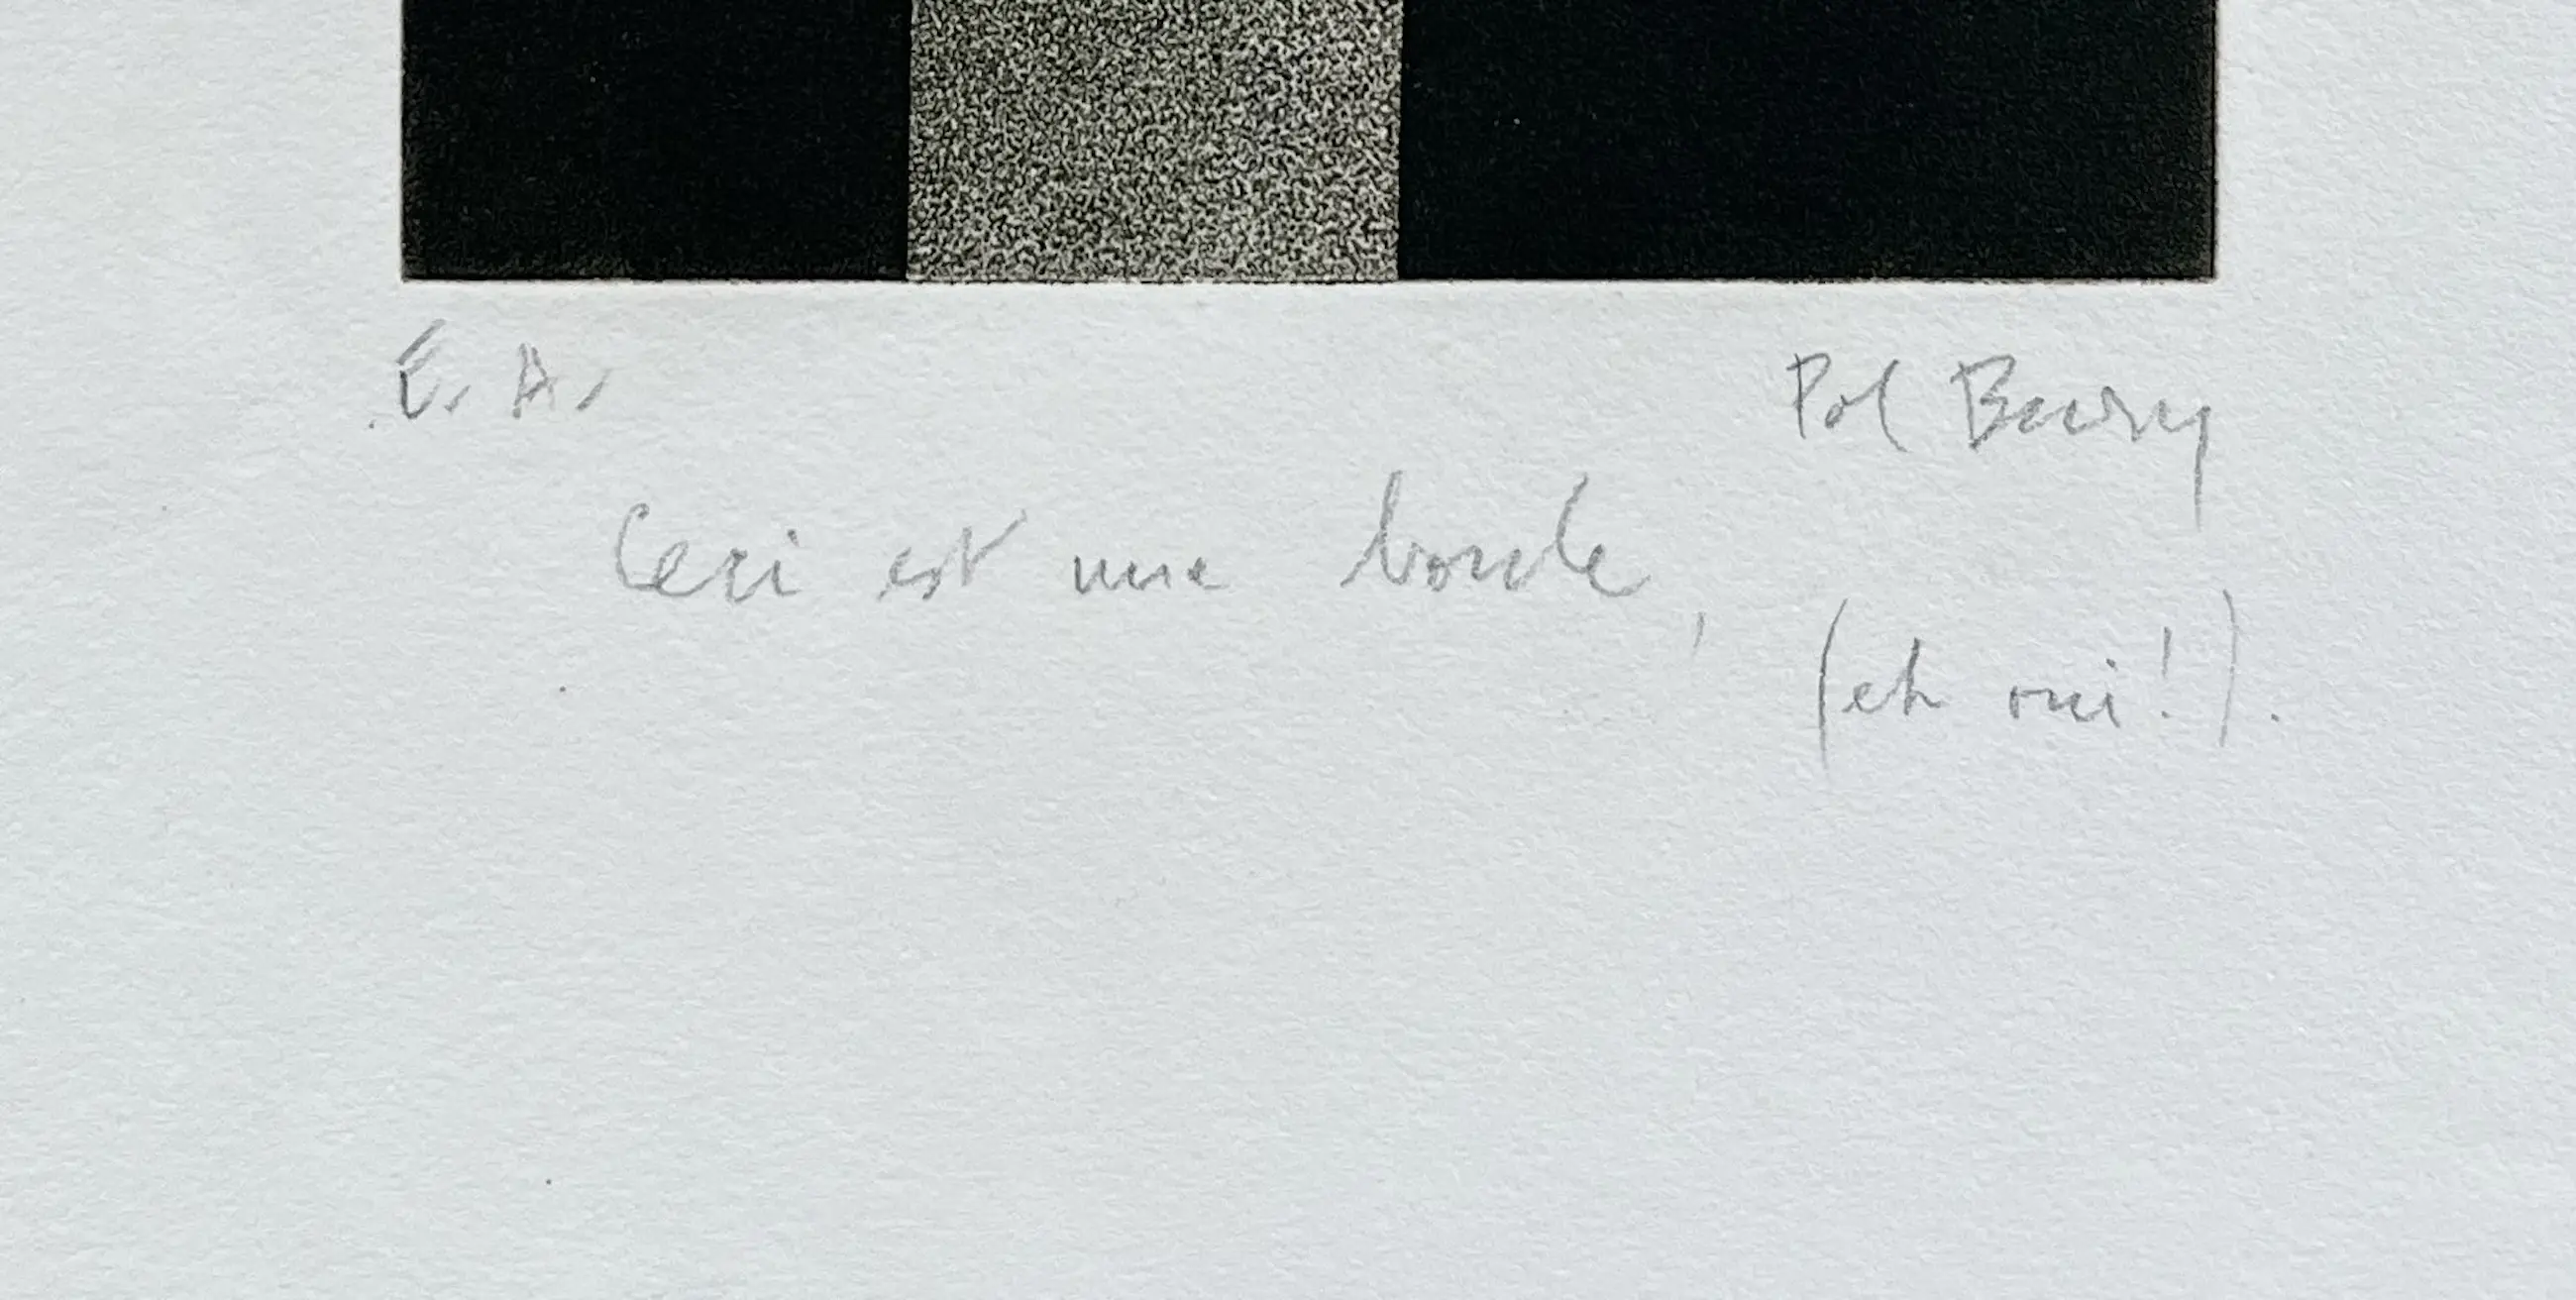 E. A.
Pol Bury
Ceci est une boule,
(eh oui!).